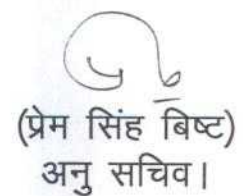 (प्रेम सिंह बिष्ट)
अनु सचिव।